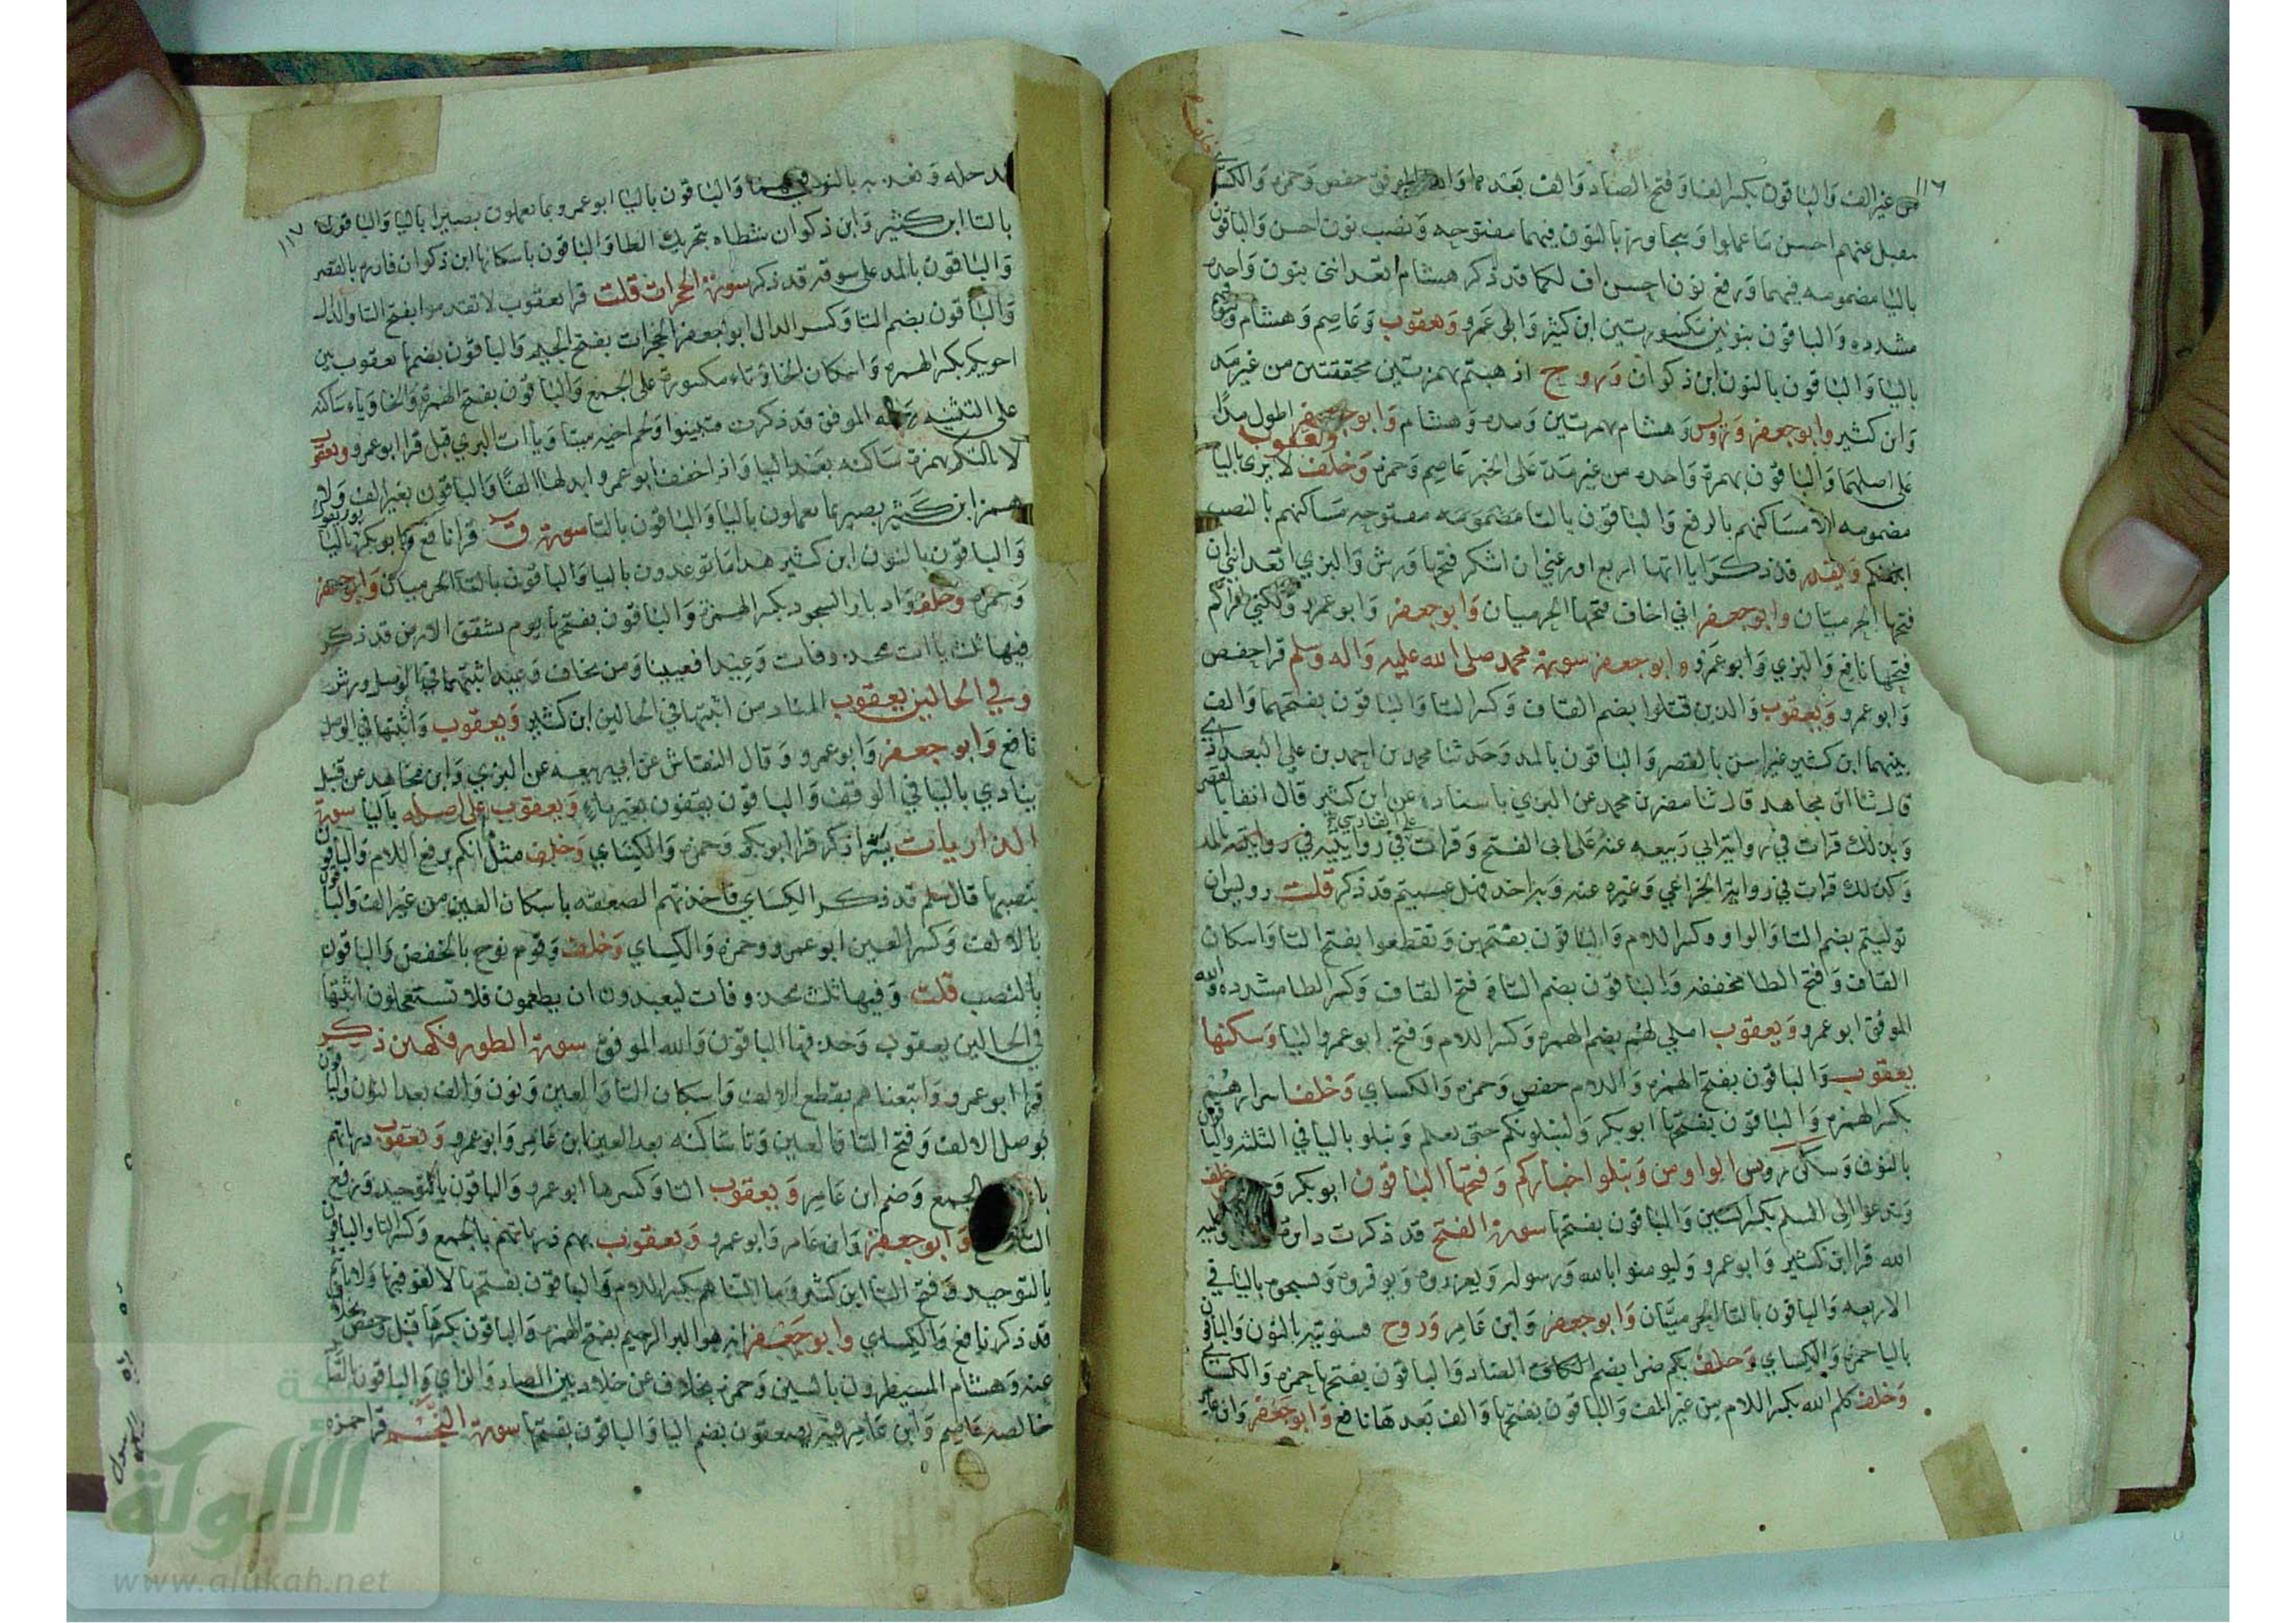 ١١٦
من غير الف والباقون بكسر الفا وفتح الصاد والف بعدها والله الموفق حفص وحمزه والكسا
يتقبل عنهم احسن ما عملوا ويتجاوز بالنون فيهما مفتوحه ونصب نون احسن والباقون
باليا مضمومه فيهما ورفع نون احسن اف لكما قد ذكر هشام اتعدانني بنون واحده
مشدده والباقون بنونين مكسورتين ابن كثير وابو عمرو ويعقوب وعاصم وهشام وليوفيهم
باليا والباقون بالنون ابن ذكوان وروح اذهبتم بهمزتين محققتين من غير مد
وابن كثير وابو جعفر ورويس وهشام بهمزتين ومده وهشام وابو جعفر اطول مدا
على اصلهما والباقون بهمزة واحده من غير مد على الخبر عاصم وحمزه وخلف ويعقوب لا يرى باليا
مضمومه الا مساكنهم بالرفع والباقون بالتا مفتوحه مساكنهم بالنصب
ابلغكم قد ذكر ياااتها اربع اوزعني ان اشكر فتحها ورش والبزي اتعدانني ان
فتحها الحرميان وابو جعفر اني اخاف فتحها الحرميان وابو جعفر وابو عمرو ولكني اراكم
فتحها نافع والبزي وابو عمرو وابو جعفر سورة محمد صلى الله عليه واله وسلم قرا حفص
وابو عمرو ويعقوب والذين قتلوا بضم القاف وكسر التا والباقون بفتحهما والف
بينهما ابن كثير غير اسن بالقصر والباقون بالمد وحدثنا محمد بن احمد بن علي البغدادي
قال ثنا ابن مجاهد قال ثنا مضر بن محمد عن البزي باسناده عن ابن كثير قال انفا بالقصر
وبذلك قرات في رواية ابي ربيعه عنه على ابي الفتح وقرات على الفارسي في روايته بالمد
وكذلك قرات في رواية الخزاعي وغيره عنه وبه اخذ فهل عسيتم قد ذكر قلت رويس ان
توليتم بضم التا والواو وكسر اللام والباقون بفتحهن وتقطعوا بفتح التا واسكان
القاف وفتح الطا مخففه والباقون بضم التا وفتح القاف وكسر الطا مشدده والله
الموفق ابو عمرو ويعقوب املي لهم بضم الهمزه وكسر اللام وفتح ابو عمرو اليا وسكنها
يعقوب والباقون بفتح الهمزه واللام حفص وحمزه والكساي وخلف اسرارهم
بكسر الهمزه والباقون بفتحها ابو بكر وليبلونكم حتى يعلم ويبلو باليا في الثلثه والباقون
بالنون وسكن رويس الواو من ونبلوا اخباركم وفتحها الباقون ابو بكر وحمزه وخلف
وتدعوا الى السلم بكسر السين والباقون بفتحها سورة الفتح قد ذكرت دايرة عليه
الله قرا ابن كثير وابو عمرو وليومنوا بالله ورسوله ويعزروه ويوقروه ويسبحوه باليا في
الاربعه والباقون بالتا الحرميان وابو جعفر وابن عامر وروح فسنوتيه بالنون والباقون
باليا حمزه والكساي وخلف بكم ضرا بضم الضاد والباقون بفتحها حمزه والكسا
وخلف كلم الله بكسر اللام من غير الف والباقون بفتحها والف بعدها نافع وابو جعفر وابن عامر
١١٧
ندخله ونعذبه بالنون فيهما والباقون باليا ابو عمرو بما تعملون بصيرا باليا والباقون
بالتا ابن كثير وابن ذكوان شطاه بتحريك الطا والباقون باسكانها ابن ذكوان فازره بالقصر
والباقون بالمد على سوقه قد ذكر سورة الحجرات قلت قرا يعقوب لا تقدموا بفتح التا والدال
والباقون بضم التا وكسر الدال ابو جعفر الحجرات بفتح الجيم والباقون بضمها يعقوب بين
اخويكم بكسر الهمزه واسكان الخا وتاء مكسورة على الجمع والباقون بفتح الهمزة والخا وياء ساكنه
على التثنيه والله الموفق قد ذكرت فتبينوا ولحم اخيه ميتا وياات البزي قبل قرا ابو عمرو ويعقوب
لا يالتكم بهمزة ساكنه بعد اليا واذا خفف ابو عمرو ابدلها الفا والباقون بغير الف ولا
همز ابن كثير بصير بما تعملون باليا والباقون بالتا سورة ق قرا نافع وابو بكر يوم يقول باليا
والباقون بالنون ابن كثير هذا ما توعدون باليا والباقون بالتا الحرميان وابو جعفر
وحمزه وخلف وادبار السجود بكسر الهمزة والباقون بفتحها يوم تشقق الارض قد ذكر
فيها ثلث ياات محذوفات وعيد افعيينا ومن يخاف وعيد اثبتهما في الوصل ورش
وفي الحالين يعقوب المناد من اثبتها في الحالين ابن كثير ويعقوب واثبتها في الوصل
نافع وابو جعفر وابو عمرو وقال النقاش عن ابي ربيعه عن البزي وابن مجاهد عن قنبل
ينادي باليا في الوقف والباقون يقفون بغير ياء ويعقوب على اصله باليا سورة
الذاريات قرا ابو بكر وحمزه والكساي وخلف مثل انكم برفع اللام والباقون
بنصبها قال سلم قد ذكر الكساي فاخذتهم الصعقه باسكان العين من غير الف والباقون
بالالف وكسر العين ابو عمرو وحمزه والكساي وخلف وقوم نوح بالخفض والباقون
بالنصب قلت وفيها ثلث محذوفات ليعبدون ان يطعمون فلا تستعجلون اثبتها
في الحالين يعقوب وحذفها الباقون والله الموفق سورة الطور فكهين ذكر
قرا ابو عمرو واتبعناهم بقطع الالف واسكان التا والعين ونون والف بعد النون والباقون
بوصل الالف وفتح التا والعين وتا ساكنه بعد العين ابن عامر وابو عمرو ويعقوب ذرياتهم
بالجمع وضم ابن عامر ويعقوب التا وكسرها ابو عمرو والباقون بالتوحيد ورفع
التا نافع وابو جعفر وابن عامر وابو عمرو ويعقوب بهم ذرياتهم بالجمع وكسر التا والباقون
بالتوحيد وفتح التا ابن كثير وما التناهم بكسر اللام والباقون بفتحها لا لغو فيها ولا تاثيم
قد ذكر نافع والكساي وابو جعفر انه هو البر الرحيم بفتح الهمزه والباقون بكسرها قنبل وحفص بخلاف
عنه وهشام المسيطرون بالسين وحمزه بخلاف عن خلاد بين الصاد والزاي والباقون بالصاد
خالصه عاصم وابن عامر فيه يصعقون بضم اليا والباقون بفتحها سورة النجم قرا حمزه
شبكة
الألوكة
www.alukah.net